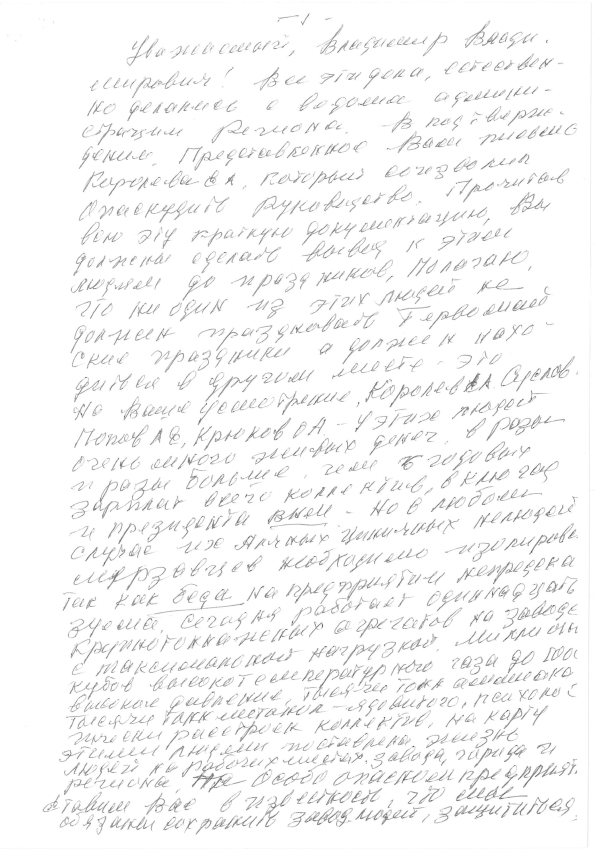 - 1 -
Уважаемый, Владимир Влади-
мирович! Все эти дела, естествен-
но делались с ведома админи-
страции Региона. В подтверж-
дении, Представленное Вам письмо
Королева СА, который соизволил
Опаскудить Руководство. Прочитав
всю эту краткую документацию, Вы
должны сделать вывод к этим
людям до праздников, Полагаю,
что ни один из этих людей не
должен праздновать Первомай
ские праздники а должен нахо-
диться в другом месте - это
на Ваше усмотрение, Королев СА
Попов АС, Крюков ОА - У этих людей
очень много живых денег, в разы
и разы больше чем 5 годовых
зарплат всего коллектива, включая
и президента - Но в любом
случае их циничных нелюдей
мерзавцев необходимо изолирова
так как беда на предприятии непредска
зуема, сегодня работает одиннадцать
крупнотоннажных агрегатов на заводе
с максимальной нагрузкой. Миллионы
кубов высокотемпературного газа до
высокое давление, тысячи тонн аммиака
тысячи тонн метанол - ядовитого, психоло
гически расстроен коллектив, на карту
этими людьми поставлена жизнь
людей на рабочих местах завода, города и
региона. Особо опасном предприят.
ставим Вас в известность, что мы
обязаны сохранить завод, людей, защититься,